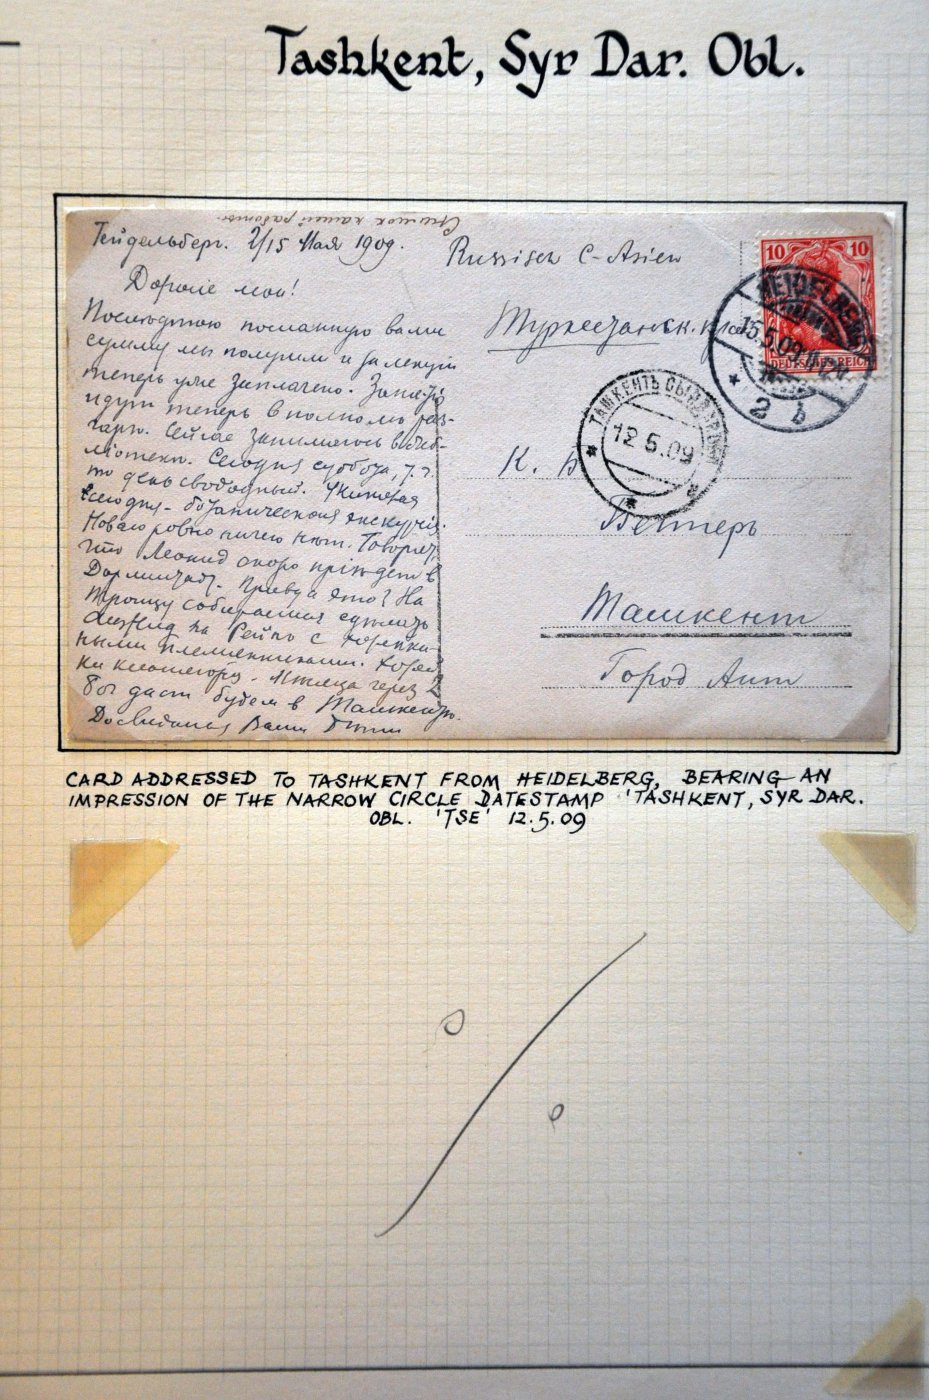 Tashkent, Syr Dar. Obl.
Снимок нашей работы.
Гейдельберг. 2/15 Мая 1909.
Дорогие мои!
Последнюю посланную вами
сумму мы получили и за лекции
теперь уже заплачено. Занятія
идут теперь в полном раз-
гаре. Сейчас занимаюсь в биб-
ліотеке. Сегодня суббота,
то день свободный.
сегодня - ботаническая экскурсія.
Новаго ровно ничего нет. Говорят,
что Леонид скоро пріедет в
Дармштадт. Правда это? На
Троицу собираемся сделать
на Рейн с
ными племянниками.
через 2
Бог даст будем в Ташкенте.
Досвиданья Ваши
Russisch C-Asien
Туркестанск. край
К. Б
Ветперъ
Ташкент
Город
10 10
DEUTSCHES REICH
HEIDELBERG
15.5.09.
* 2 b
ТАШКЕНТЪ СЫРЪ ДАР.
12.5.09
CARD ADDRESSED TO TASHKENT FROM HEIDELBERG, BEARING AN
IMPRESSION OF THE NARROW CIRCLE DATESTAMP 'TASHKENT, SYR DAR.
OBL. 'TSE' 12.5.09